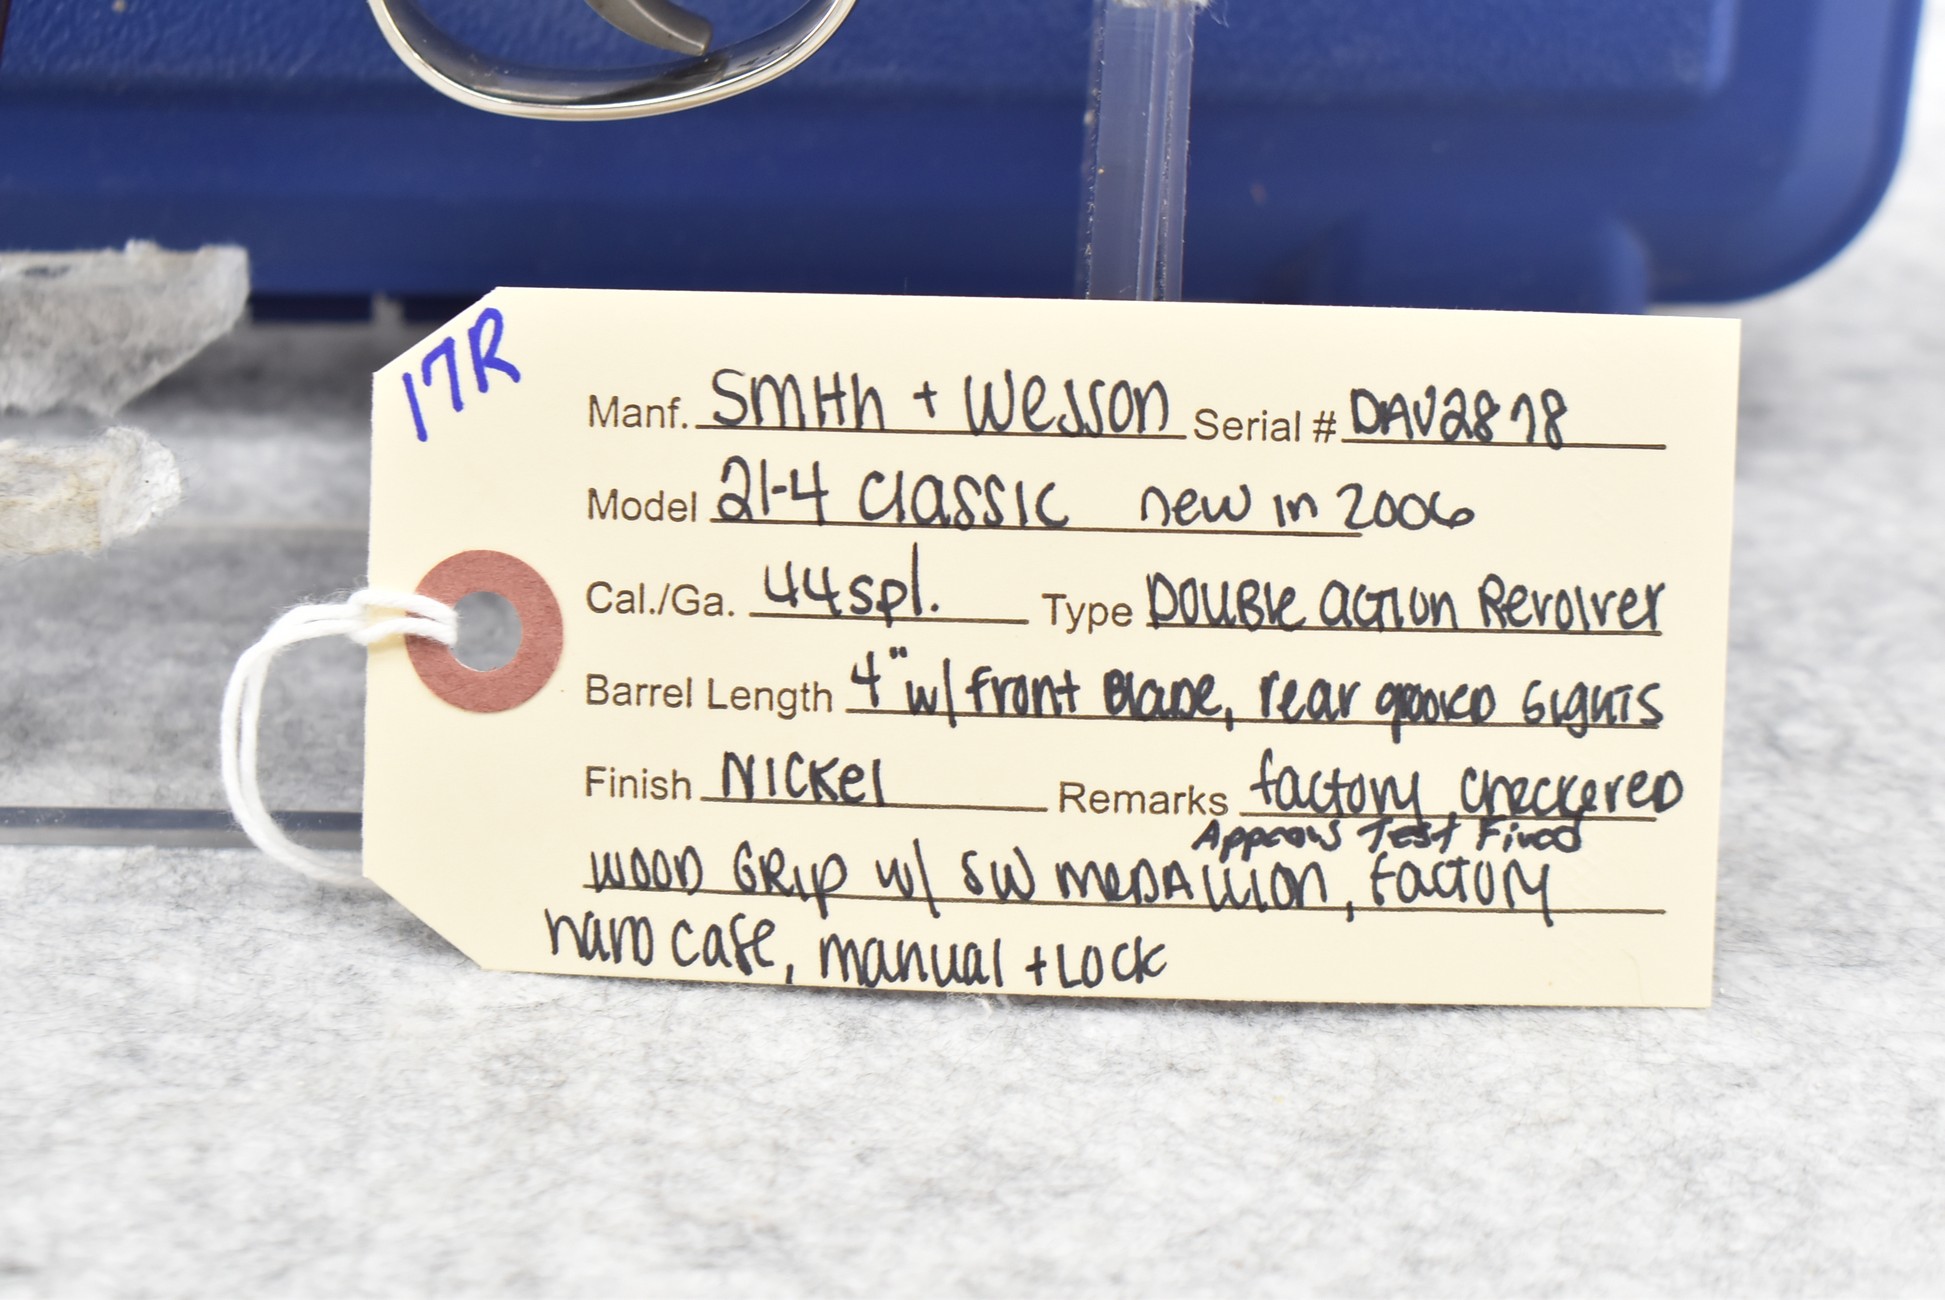 17R
Manf. Smith + Wesson Serial # DAV2878
Model 21-4 Classic new in 2006
Cal./Ga. 44 spl. Type Double Action Revolver
Barrel Length 4" w/ front Blade, rear grooved sights
Finish Nickel Remarks factory checkered
Appears Test Fired
wood Grip w/ SW medallion, factory
hard case, manual + Lock